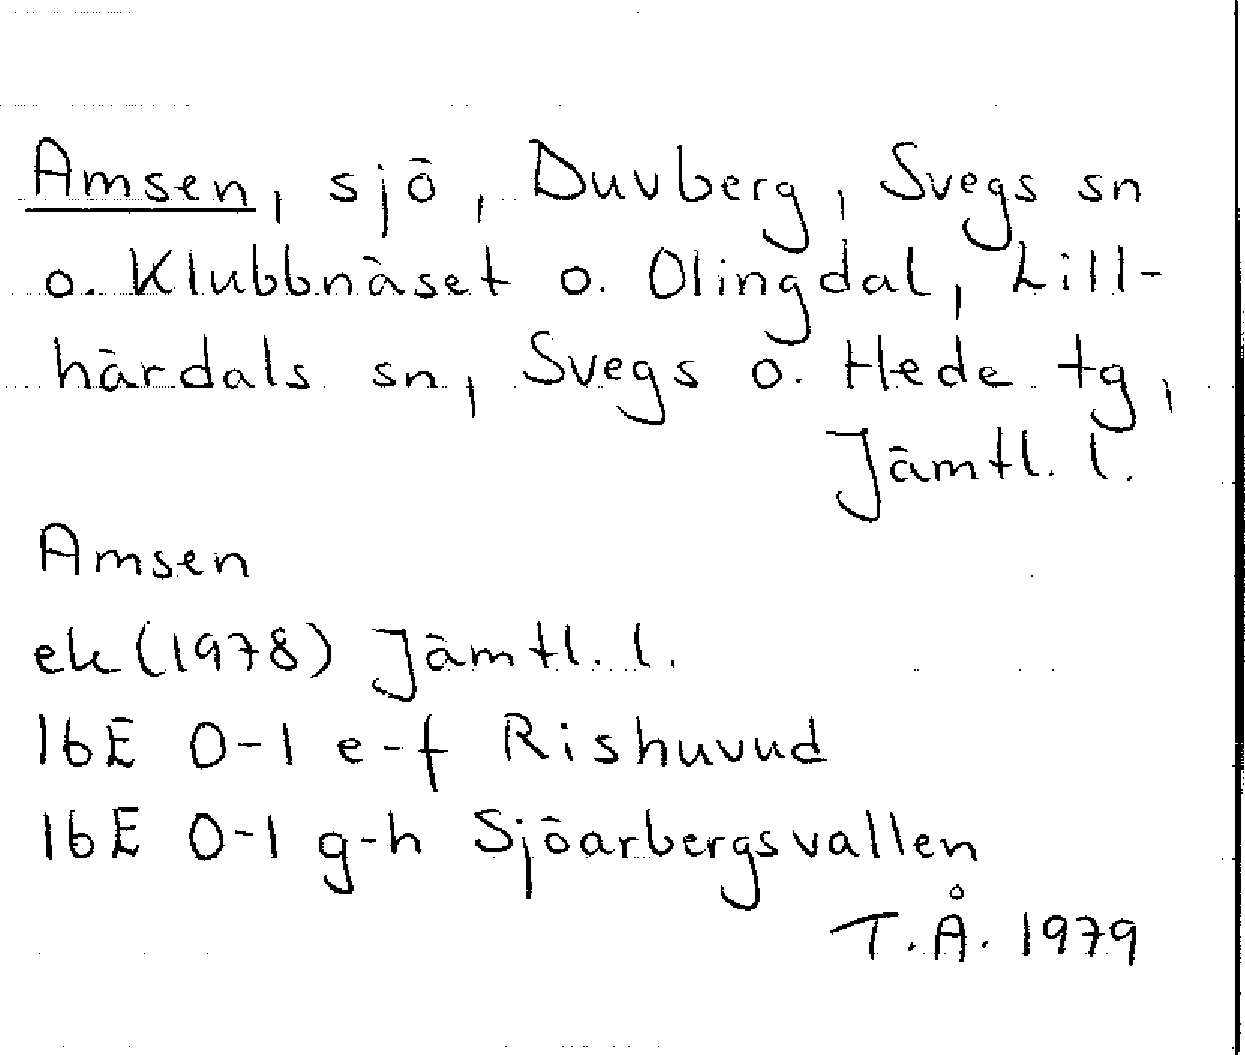 Amsen, sjö, Duvberg, Svegs sn
o. Klubbnäset o. Olingdal, Lill-
härdals sn, Svegs o. Hede tg,
Jämtl. l.
Amsen
ek (1978) Jämtl. l.
16E 0-1 e-f Rishuvud
16E 0-1 g-h Sjöarbergsvallen
T.Å. 1979